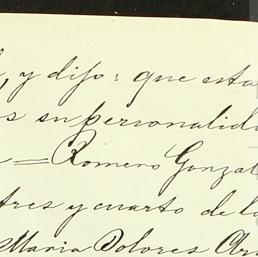 , y dijo: que esta
s su personalid
= Romero Gonzal
tres y cuarto de la
Maria Dolores Ar